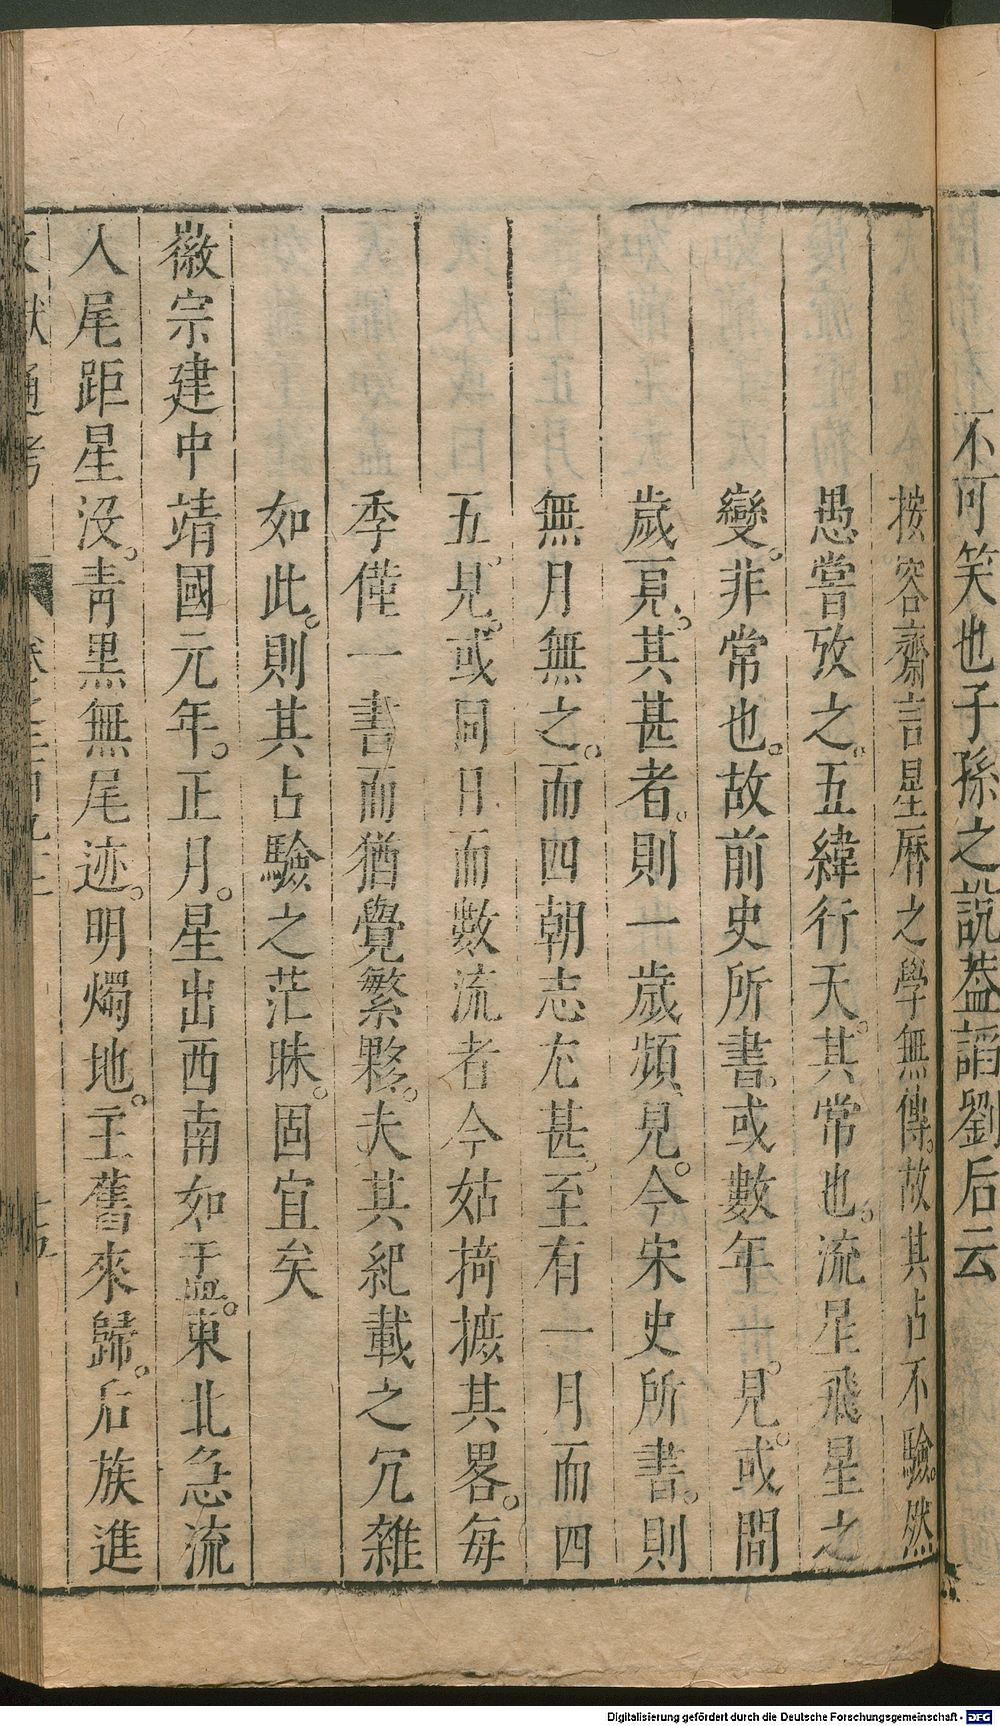 不可笑也子孫之說葢謟劉后云
按容齋言星曆之學無傳。故其占不驗。然
愚嘗攷之。五緯行天。其常也。流星飛星之
變。非常也。故前史所書。或數年一見。或間
歲一見。其甚者。則一歲頻見。今宋史所書。則
無月無之。而四朝志尤甚。至有一月而四
五見。或同日而數流者今姑摘摭其畧。每
季僅一書而猶覺繁夥。夫其紀載之冗雜
如此。則其占驗之茫昧。固宜矣
徽宗建中靖國元年。正月。星出西南如盂。東北急流
入尾距星没。青黒無尾迹。明燭地。主舊來歸。后族進
文獻通考
Digitalisierung gefördert durch die Deutsche Forschungsgemeinschaft - DFG